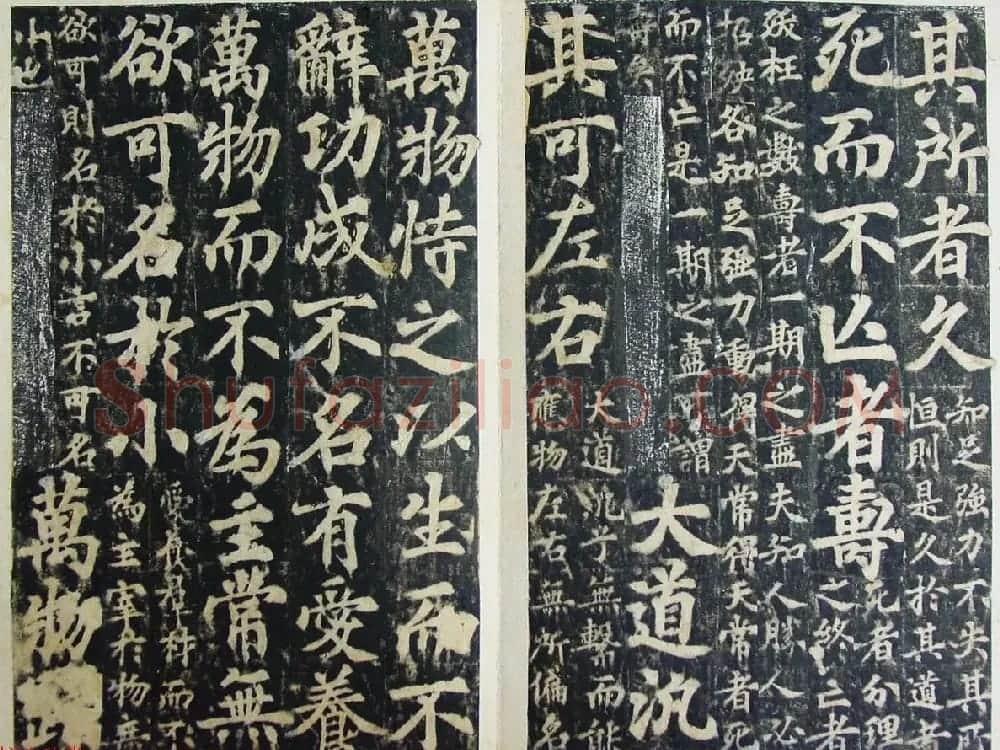 其所者久
知足強力不失其所
恒則是久於其道
死而不亡者壽
死者分理
之終亡者
殀枉之數壽者一期之盡夫知人勝人必
招殃各知足強力動得天常得天常者死
而不亡是一期之盡可謂
壽矣
大道汎
其可左右
大道汎兮無繫而能
應物左右無所偏名
萬物恃之以生而不
辭功成不名有愛養
萬物而不為主常無
欲可名於小
愛養羣材而不
為主宰於物無
欲可則名於小言不可名
小也
萬物
Shufaziliao.COM